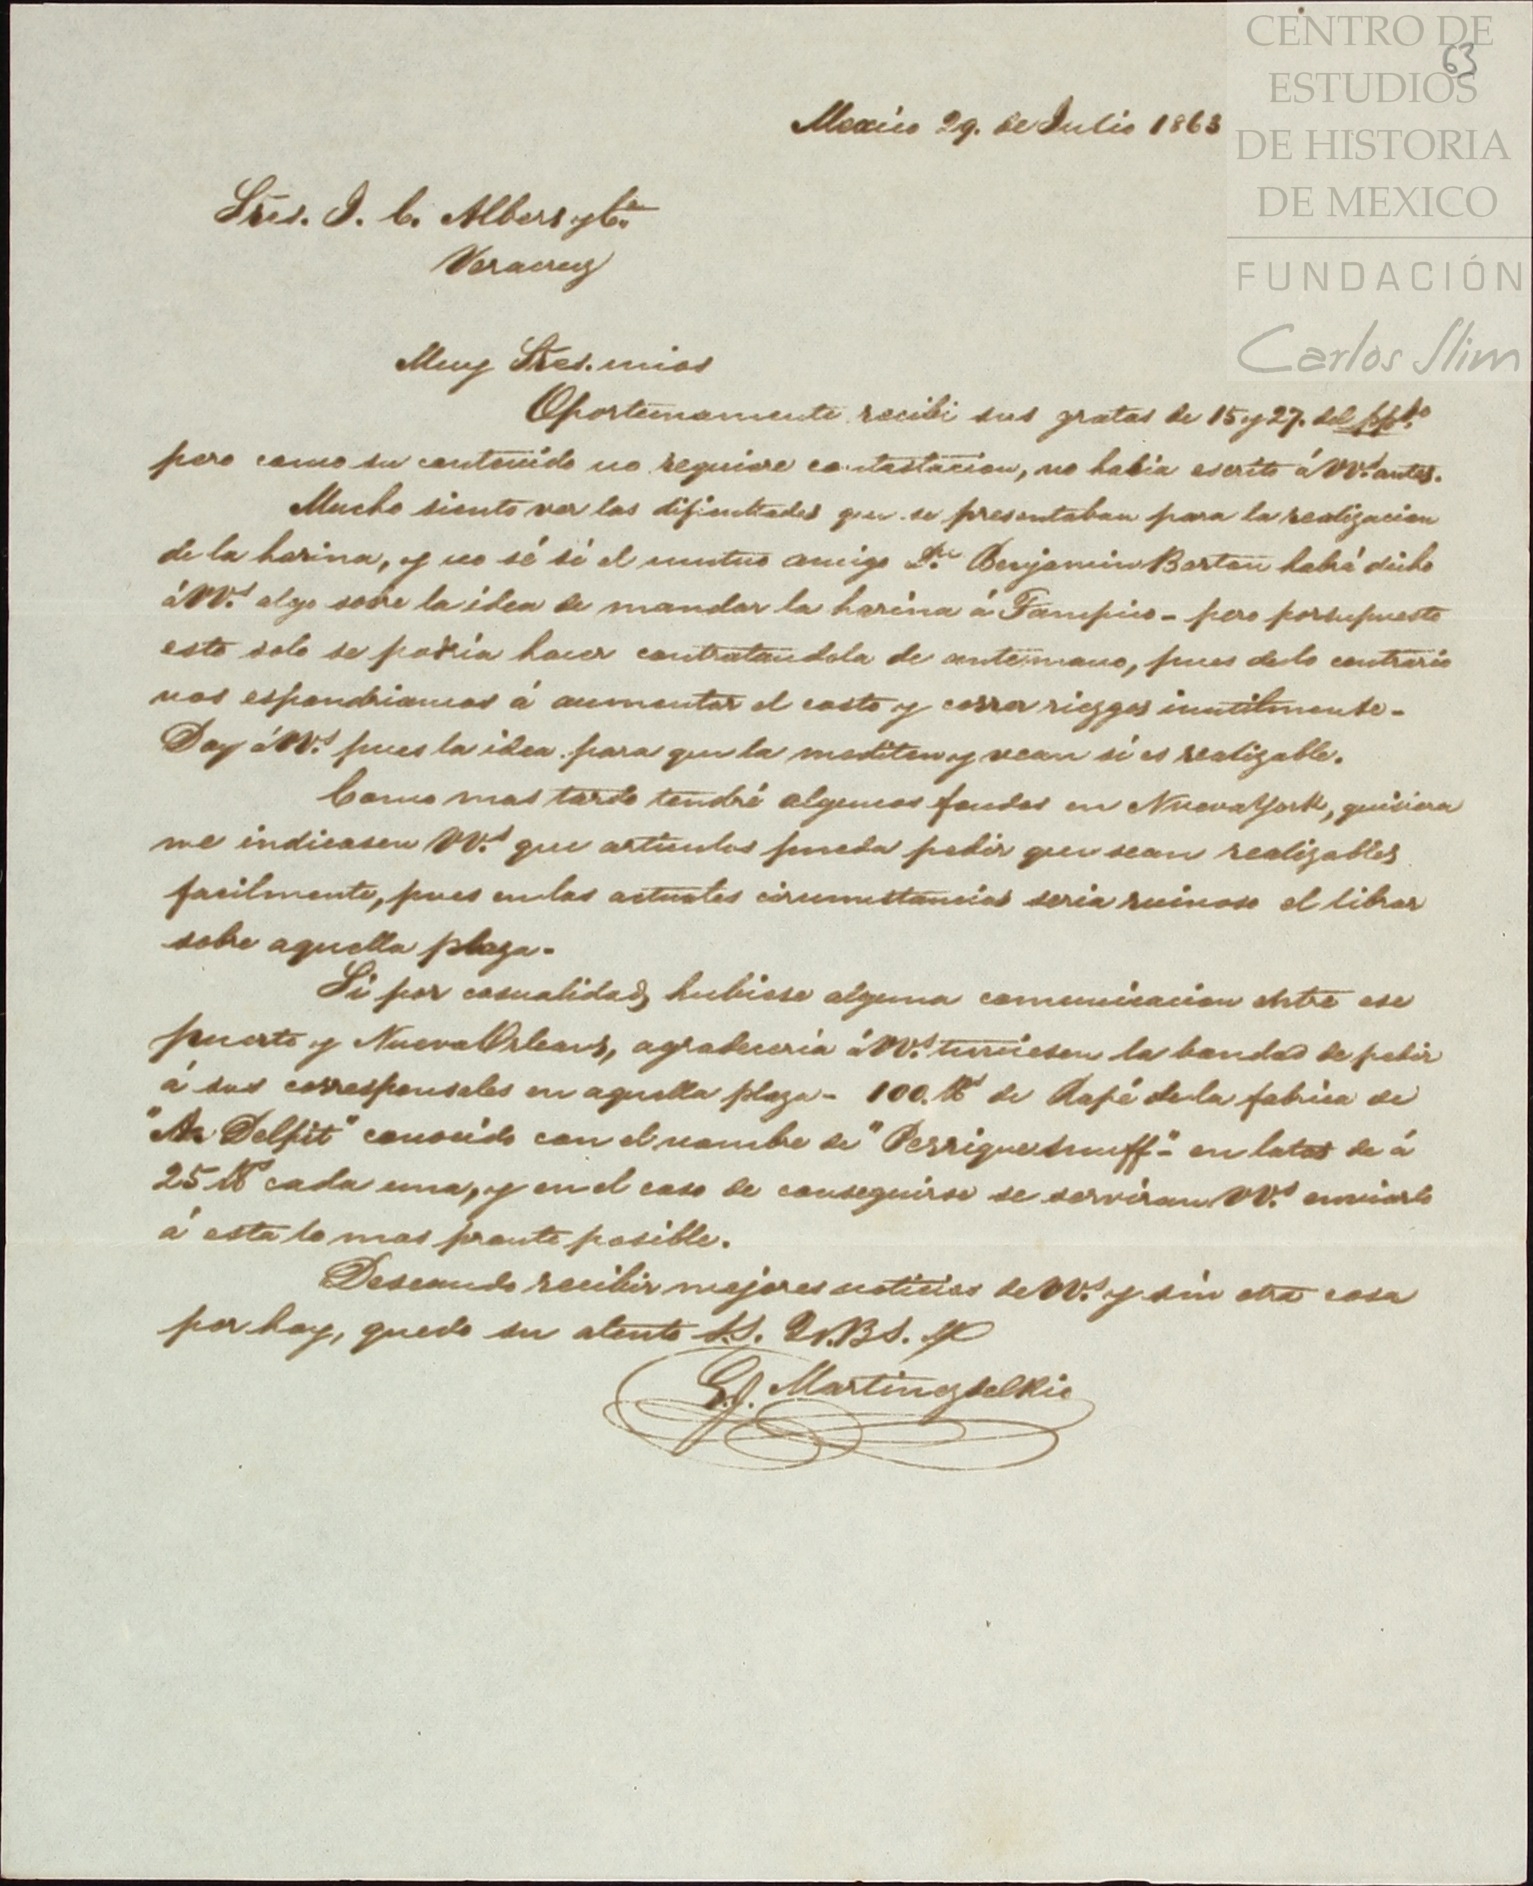 CENTRO DE
ESTUDIOS
DE HISTORIA
DE MEXICO
FUNDACIÓN
Carlos Slim
63
Mexico 29. de Julio 1863
Sres. J. C. Albers y Ca.
Veracruz
Muy Sres. mios
Oportunamente recibi sus gratas de 15 y 27. del ppdo.
pero como su contenido no requiere contestacion, no habia escrito á VVs. antes.
Mucho siento ver las dificultades que se presentaban para la realizacion
de la harina, y no sé si el mutuo amigo Dn. Benjamin Barton habrá dicho
á VVs. algo sobre la idea de mandar la harina á Tampico - pero por supuesto
esto solo se podria hacer contratandola de antemano, pues de lo contrario
nos espondriamos á aumentar el costo y correr riezgos inutilmente -
Doy á VVs. pues la idea para que la mediten y vean si es realizable.
Como mas tarde tendré algunos fondos en Nueva York, quisiera
me indicasen VVs. que articulos pueda pedir que sean realizables
facilmente, pues en las actuales circumstancias seria ruinoso el librar
sobre aquella plaza -
Si por casualidad hubiese alguna comunicacion entre ese
puerto y Nueva Orleans, agradeceria á VVs. tuviesen la bondad de pedir
á sus corresponsales en aquella plaza - 100. lbs de Rapé de la fabrica de
"An Delpit" conocido con el nombre de "Perrique snuff" - en latas de á
25 lbs cada una, y en el caso de conseguirse se serviran VVs. enviarlo
á esta lo mas pronto posible.
Deseando recibir mejores noticias de VVs. y sin otra cosa
por hoy, quedo su atento S.S. Q.B.S.M
G. J. Martinez del Rio